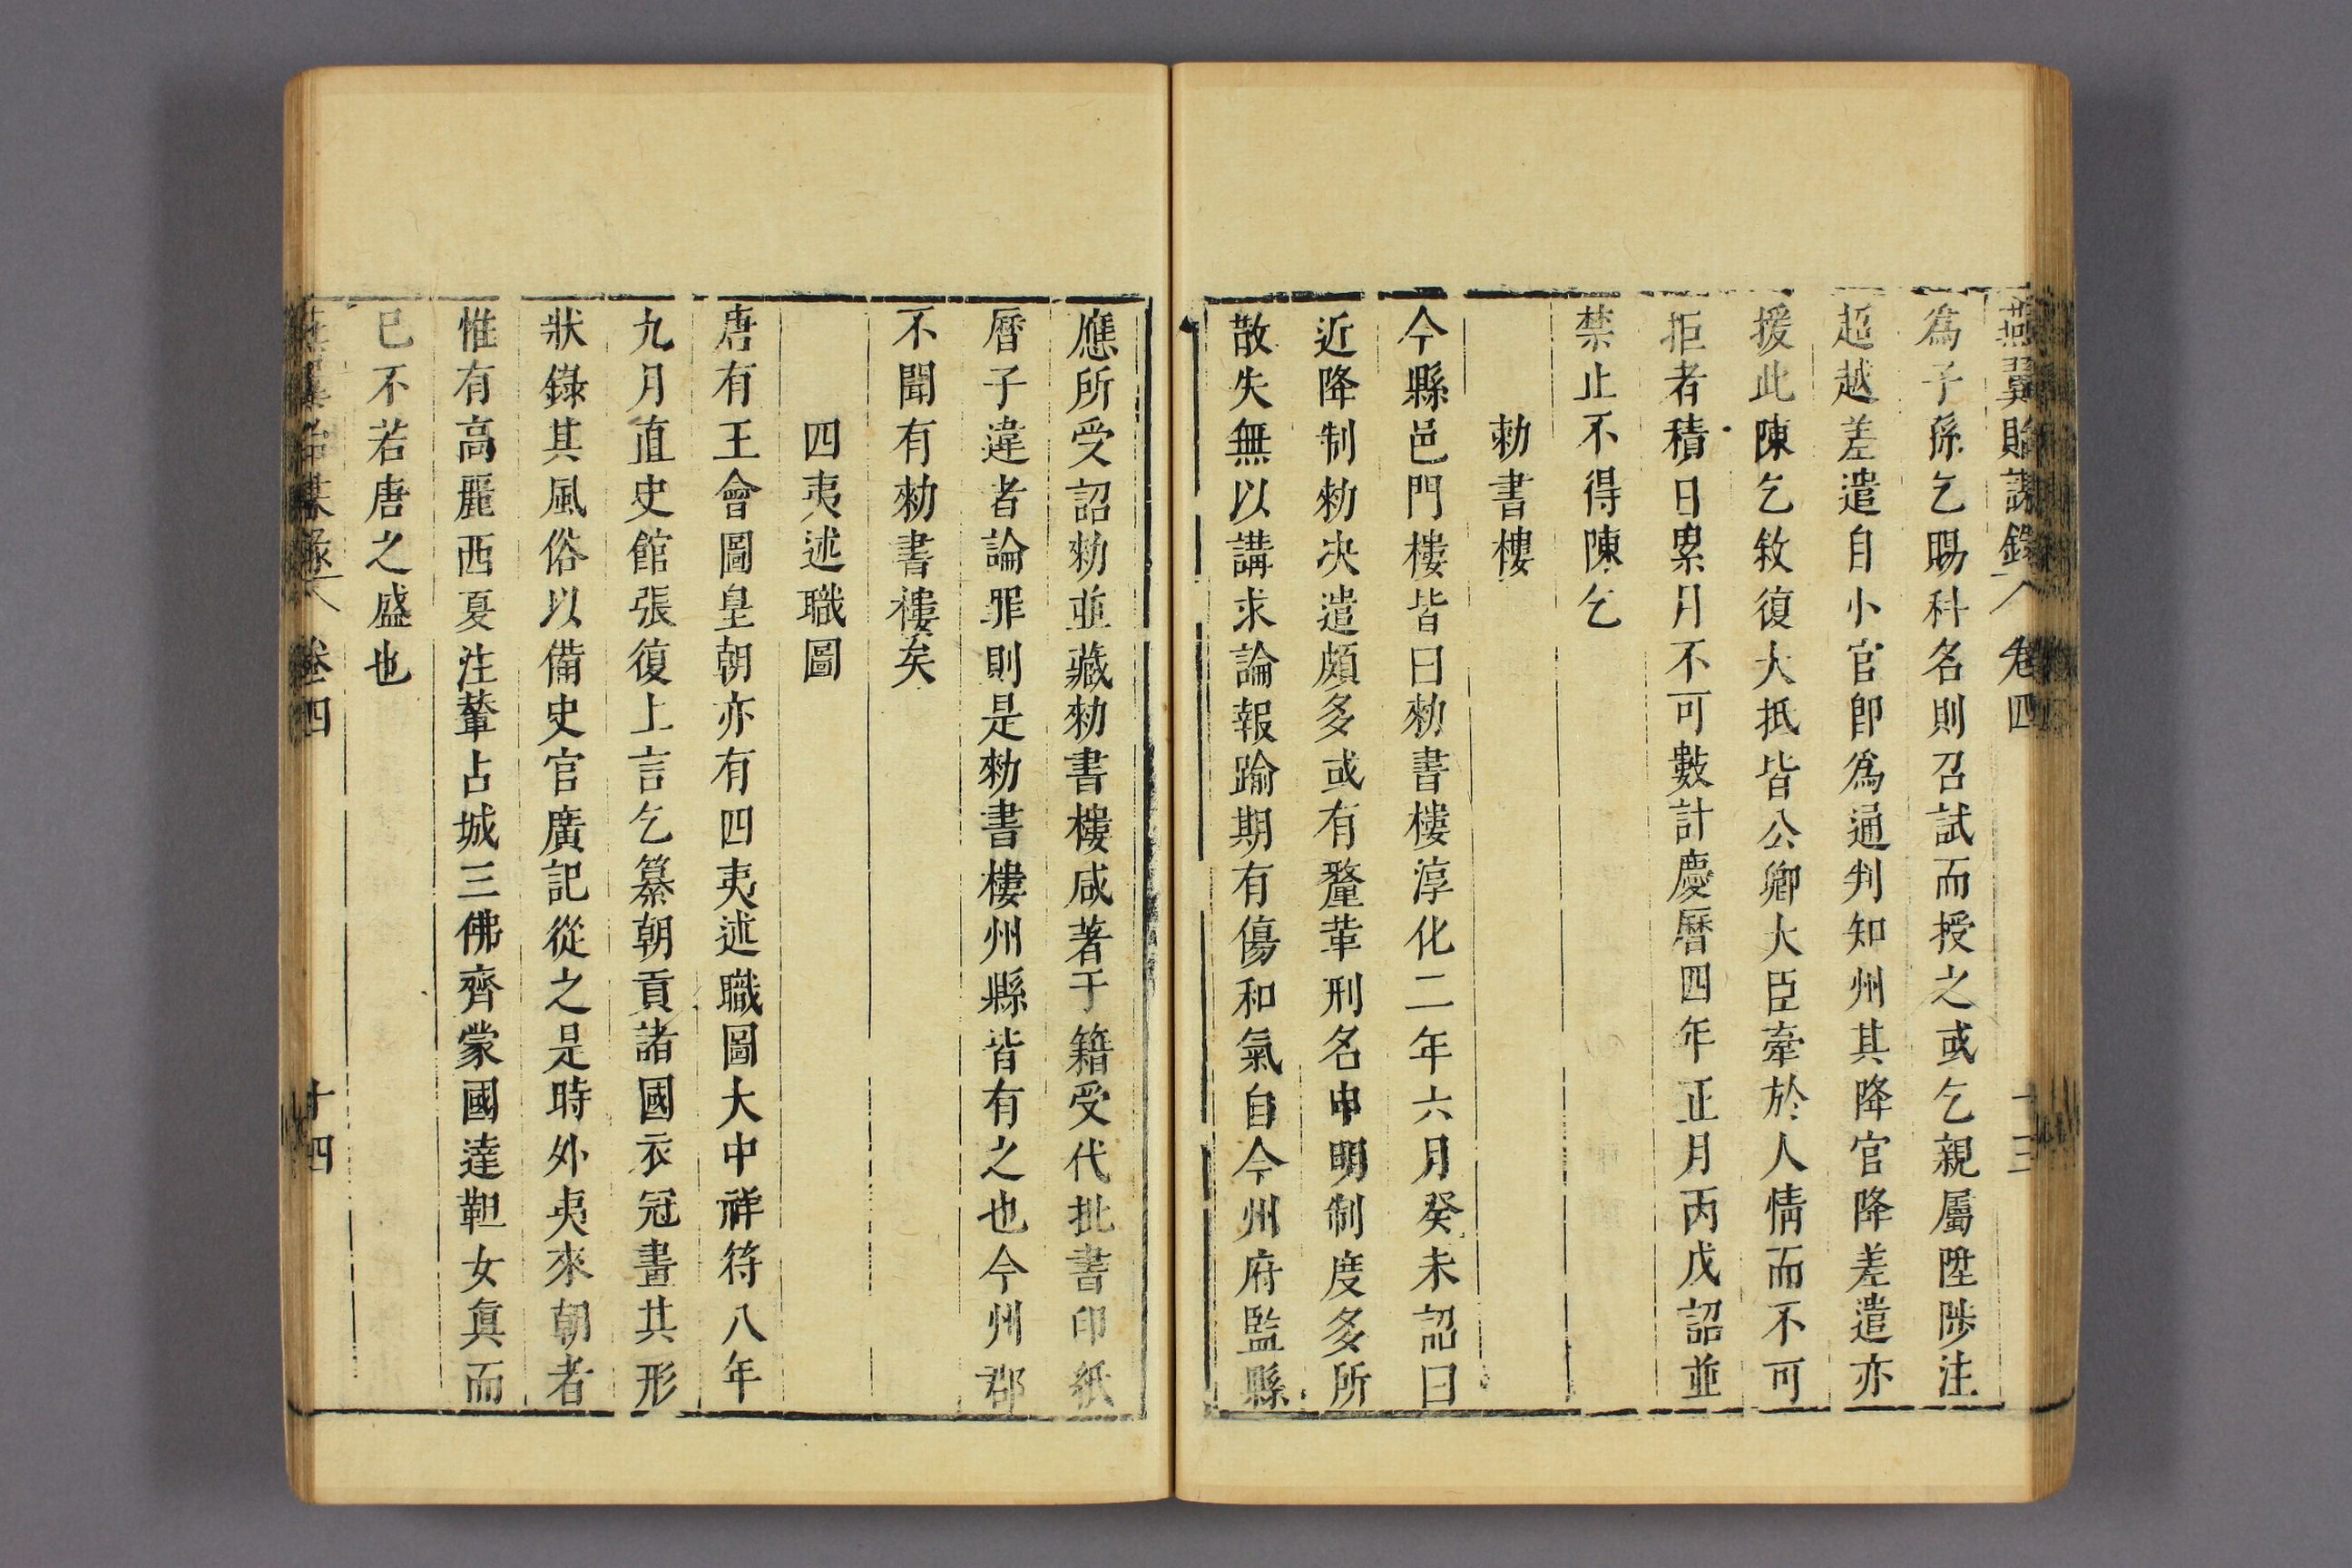 燕翼貽謀錄 卷四 十三
爲子孫乞賜科名則召試而授之或乞親屬陞陟注
超越差遣自小官卽爲通判知州其降官降差遣亦
援此陳乞敘復大抵皆公卿大臣牽於人情而不可
拒者積日累月不可數計慶曆四年正月丙戌詔並
禁止不得陳乞
勑書樓
今縣邑門樓皆曰勑書樓淳化二年六月癸未詔曰
近降制勑决遣頗多或有釐革刑名申明制度多所
散失無以講求論報踰期有傷和氣自今州府監縣
應所受詔勑並藏勑書樓咸著于籍受代批書印紙
曆子違者論罪則是勑書樓州縣皆有之也今州郡
不聞有勑書樓矣
四夷述職圖
唐有王會圖皇朝亦有四夷述職圖大中祥符八年
九月直史館張復上言乞纂朝貢諸國衣冠畫其形
狀錄其風俗以備史官廣記從之是時外夷來朝者
惟有高麗西夏注輦占城三佛齊蒙國達靼女真而
已不若唐之盛也
燕翼詒謀錄 卷四 十四